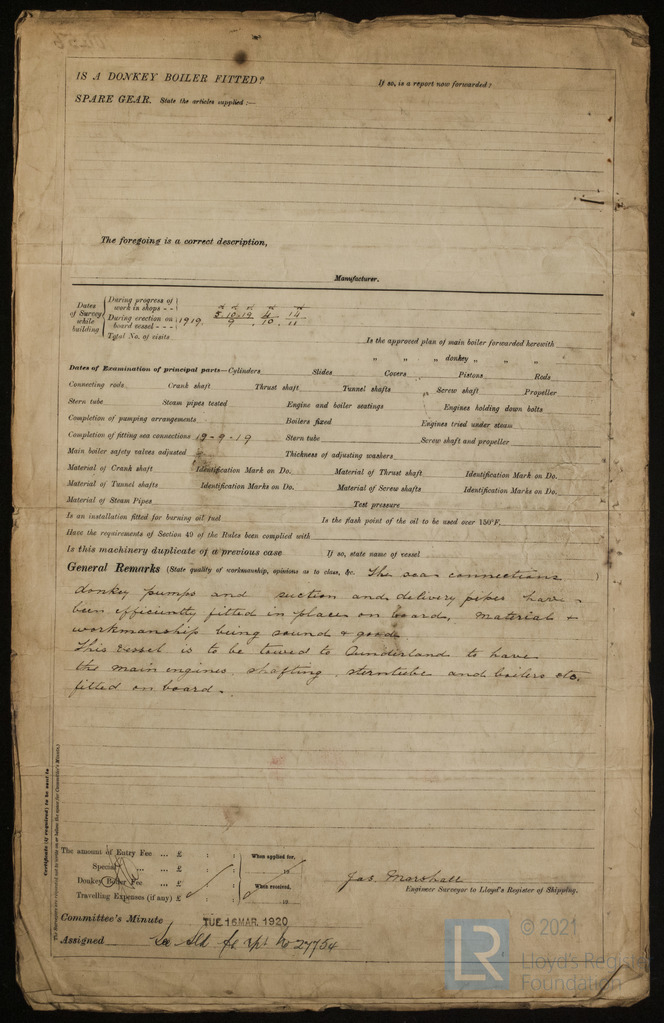 IS A DONKEY BOILER FITTED? If so, is a report now forwarded?
SPARE GEAR. State the articles supplied:—
The foregoing is a correct description,
Manufacturer.
Dates of Survey while building
During progress of work in shops - -
During erection on board vessel - - - 1919.
Total No. of visits
Is the approved plan of main boiler forwarded herewith
" " " donkey " " "
Dates of Examination of principal parts—Cylinders Slides Covers Pistons Rods
Connecting rods Crank shaft Thrust shaft Tunnel shafts Screw shaft Propeller
Stern tube Steam pipes tested Engine and boiler seatings Engines holding down bolts
Completion of pumping arrangements Boilers fixed Engines tried under steam
Completion of fitting sea connections 19-9-19 Stern tube Screw shaft and propeller
Main boiler safety valves adjusted Thickness of adjusting washers
Material of Crank shaft Identification Mark on Do. Material of Thrust shaft Identification Mark on Do.
Material of Tunnel shafts Identification Marks on Do. Material of Screw shafts Identification Marks on Do.
Material of Steam Pipes Test pressure
Is an installation fitted for burning oil fuel Is the flash point of the oil to be used over 150°F.
Have the requirements of Section 49 of the Rules been complied with
Is this machinery duplicate of a previous case If so, state name of vessel
General Remarks (State quality of workmanship, opinions as to class, &c. The sea connections
donkey pumps and suction and delivery pipes have
been efficiently fitted in place on board, material &
workmanship being sound & good.
This vessel is to be towed to Sunderland to have
the main engines, shafting, sterntube and boilers etc.
fitted on board.
Certificate (if required) to be sent to
The amount of Entry Fee ... £ : : When applied for,
Special ... £ : : 19
Donkey Boiler Fee ... £ : : When received,
Travelling Expenses (if any) £ : : 19
Jas. Marshall
Engineer Surveyor to Lloyd's Register of Shipping.
Committee's Minute TUE 16 MAR. 1920
Assigned See Sld fe rpt No 27754
© 2021
LR
Lloyd's Register
Foundation